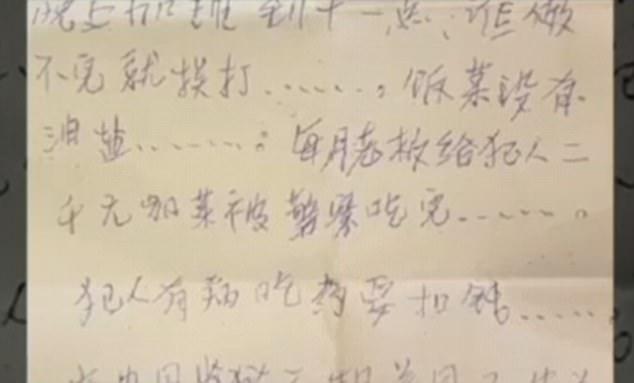 晚上加班到十一点、谁做
不完就挨打……。饭菜没有
油盐……。每月老板给犯人二
千元加菜被警察吃完……。
犯人有病吃药要扣钱……